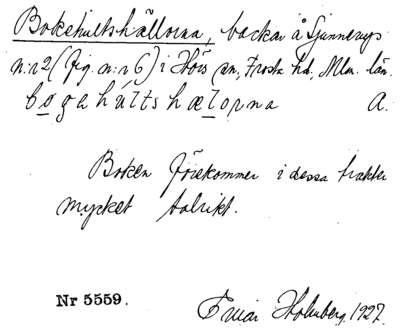 Bokehultshällorna, backar å Sjunneryds
n:r 2 (fig. n:r 6) i Hörs sn, Frosta hd, Mlm. län.
bøgahultshælorna A.
Boken förekommer i dessa trakter
mycket talrikt.
Nr 5559.
Einar Holmberg. 1927.